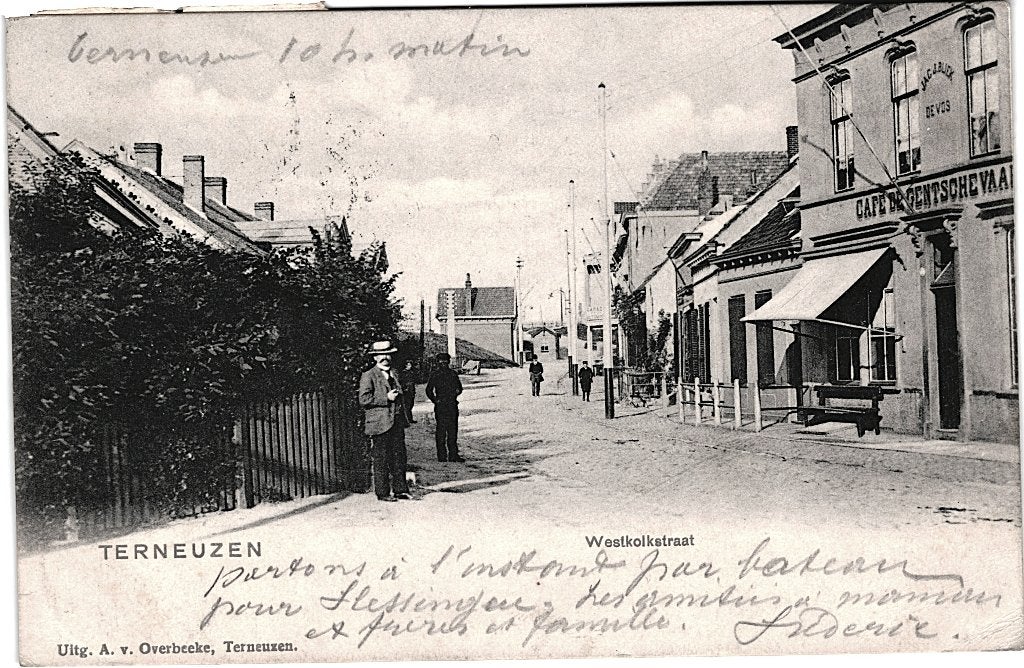 Terneuzen 10 h. matin
JAC. J. BLICK
DE VOS
CAFÉ DE GENTSCHE VAA
TERNEUZEN
Westkolkstraat
partons à l'instant par bateau
pour Flessingue. Les amitiés à maman
et frères et famille. Fréderic.
Uitg. A. v. Overbeeke, Terneuzen.